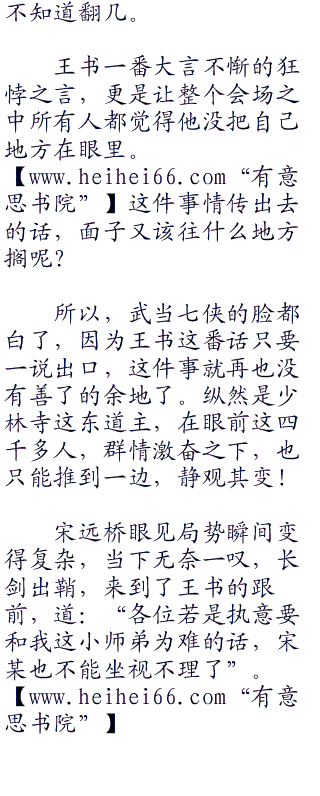 不知道翻几。
王书一番大言不惭的狂
悖之言，更是让整个会场之
中所有人都觉得他没把自己
地方在眼里。
【www.heihei66.com“有意
思书院”】这件事情传出去
的话，面子又该往什么地方
搁呢？
所以，武当七侠的脸都
白了，因为王书这番话只要
一说出口，这件事就再也没
有善了的余地了。纵然是少
林寺这东道主，在眼前这四
千多人，群情激奋之下，也
只能推到一边，静观其变！
宋远桥眼见局势瞬间变
得复杂，当下无奈一叹，长
剑出鞘，来到了王书的跟
前，道：“各位若是执意要
和我这小师弟为难的话，宋
某也不能坐视不理了”。
【www.heihei66.com“有意
思书院”】